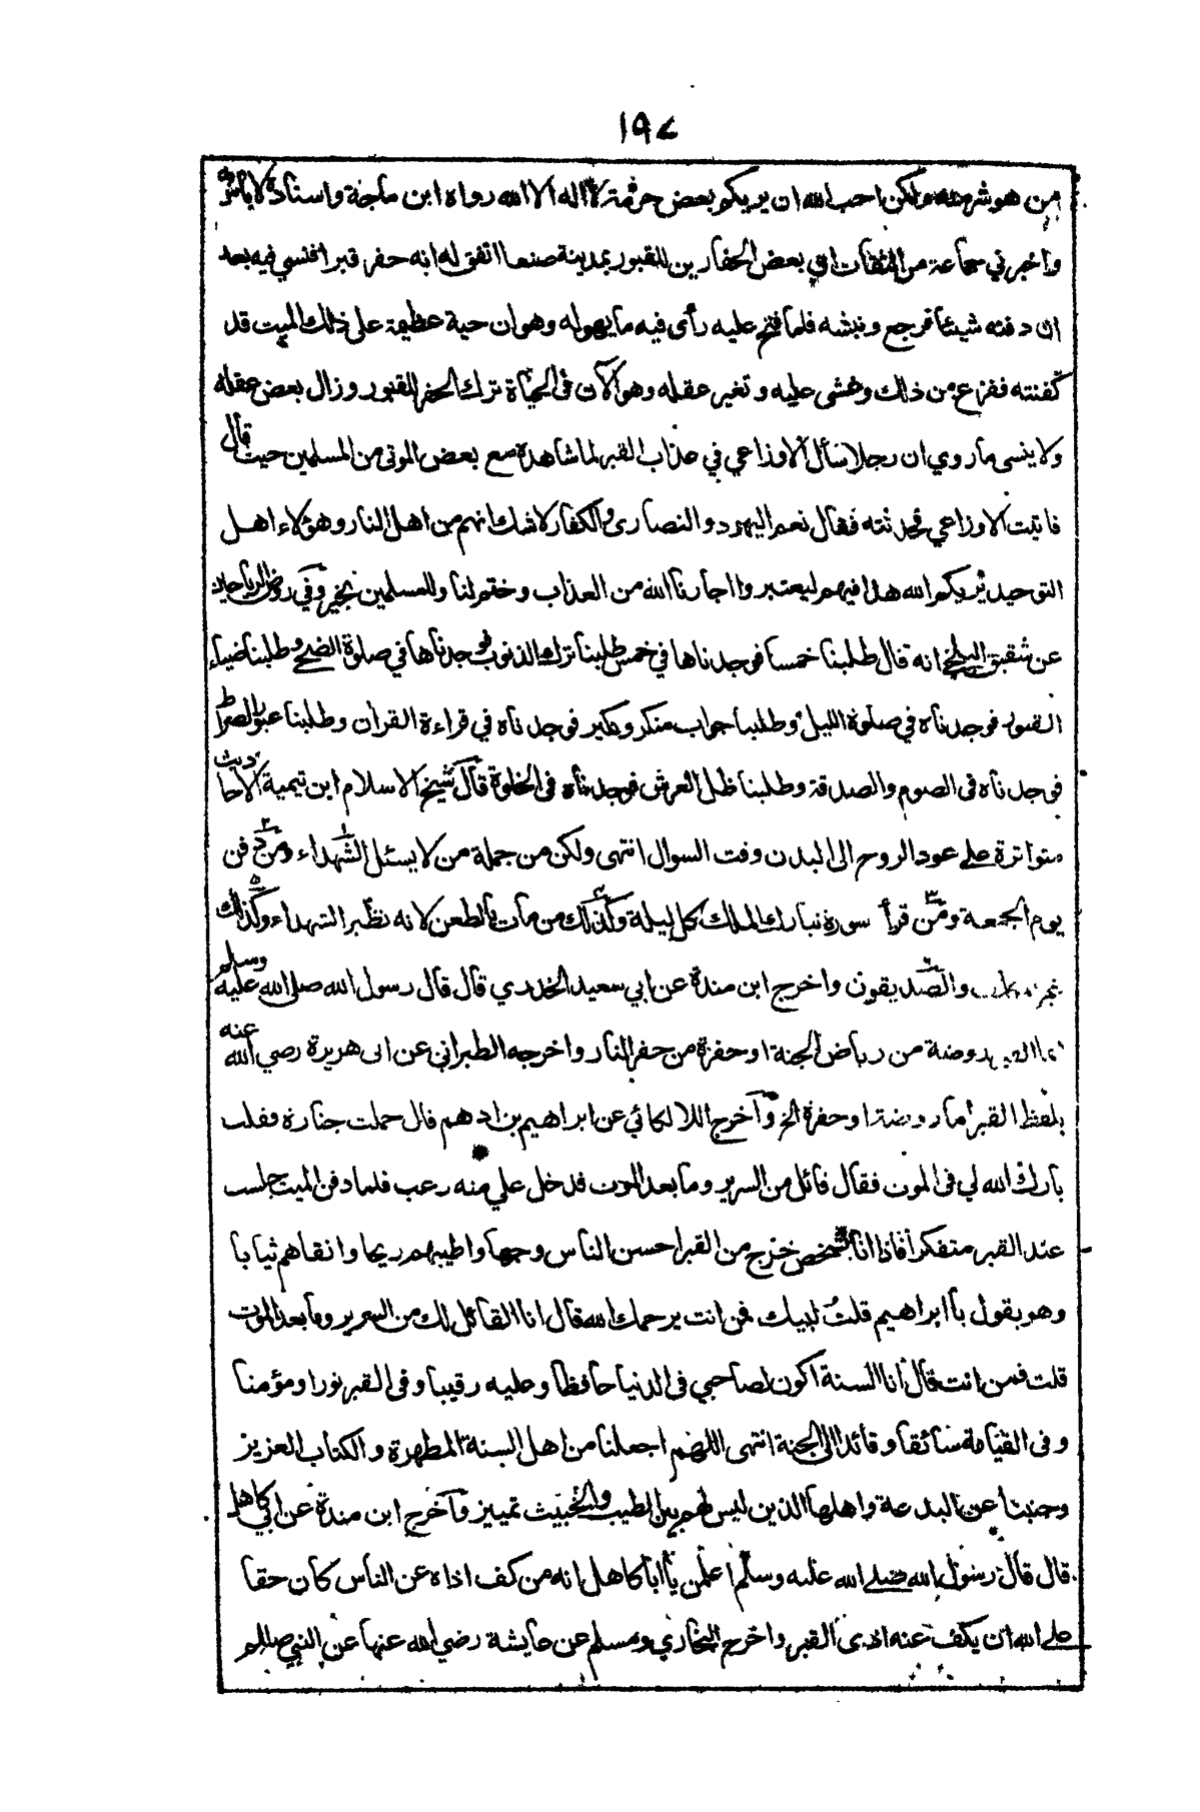 ١٩٧
من هو شر منه ولكن احب الله ان يريكم بعض حرمة لا اله الا الله رواه ابن ماجة واسناده لا بأس به
واخبرني جماعة من الثقات ان بعض الحفارين للقبور بمدينة صنعا اتفق له انه حفر قبرا فنسي فيه بعد
ان دفنه شيئا فرجع ونبشه فلما فتح عليه رأى فيه ما يهوله وهو ان حية عظيمة على ذلك الميت قد
كفنته ففزع من ذلك وغشى عليه وتغير عقله وهو الآن فى الحياة ترك الحفر للقبور وزال بعض عقله
ولا ينسى ما روي ان رجلا سأل الاوزاعي في عذاب القبر لما شاهده مع بعض الموتى من المسلمين حيث قال
فاتيت الاوزاعي فحدثته فقال نعم اليهود والنصارى والكفار لا شك انهم من اهل النار وهؤلاء اهل
التوحيد يريكم الله هذا فيهم ليعتبروا اجارنا الله من العذاب وختم لنا وللمسلمين بخير وفي روض الرياحين
عن شقيق البلخي انه قال طلبنا خمسا فوجدناها في خمس طلبنا ترك الذنوب فوجدناها في صلوة الضحى وطلبنا ضياء
القبور فوجدناه في صلوة الليل وطلبنا جواب منكر ونكير فوجدناه في قراءة القرآن وطلبنا عبور الصراط
فوجدناه فى الصوم والصدقة وطلبنا ظل العرش فوجدناه فى الخلوة قال شيخ الاسلام ابن تيمية الاحاديث
متواترة على عود الروح الى البدن وقت السوال انتهى ولكن من جملة من لا يسئل الشهداء ١ ومن دفن ٢
يوم الجمعة ومن ٣ قرأ سورة تبارك الملك كل ليلة وكذلك ٤ من مات بالطعن لانه نظير الشهداء وكذلك ٥
والصديقون ٦ واخرج ابن مندة عن ابي سعيد الخدري قال قال رسول الله صلى الله عليه وسلم
روضة من رياض الجنة او حفرة من حفر النار واخرجه الطبراني عن ابى هريرة رضي الله عنه
بلفظ القبر اما روضة او حفرة الخ وآخرج اللالكائي عن ابراهيم بن ادهم قال حملت جنازة فقلت
بارك الله لي فى الموت فقال قائل من السرير وما بعد الموت فدخل علي منه رعب فلما دفن الميت جلست
عند القبر متفكرا فاذا انا بشخص خرج من القبر احسن الناس وجها واطيبهم ريحا وانقاهم ثيابا
وهو يقول يا ابراهيم قلت لبيك فمن انت يرحمك الله قال انا القائل لك من السرير وما بعد الموت
قلت فمن انت قال انا السنة اكون لصاحبي فى الدنيا حافظا وعليه رقيبا وفى القبر نورا ومؤمنا
وفى القيامة سائقا وقائدا الى الجنة انتهى اللهم اجعلنا من اهل السنة المطهرة والكتاب العزيز
وجنبنا عن البدعة واهلها الذين ليس لهم بين الطيب والخبيث تمييز وآخرج ابن مندة عن ابي كاهل
قال قال رسول الله صلى الله عليه وسلم اعلمن يا ابا كاهل انه من كف اذاه عن الناس كان حقا
على الله ان يكف عنه اذى القبر واخرج البخاري ومسلم عن عايشة رضي الله عنها عن النبي صللم